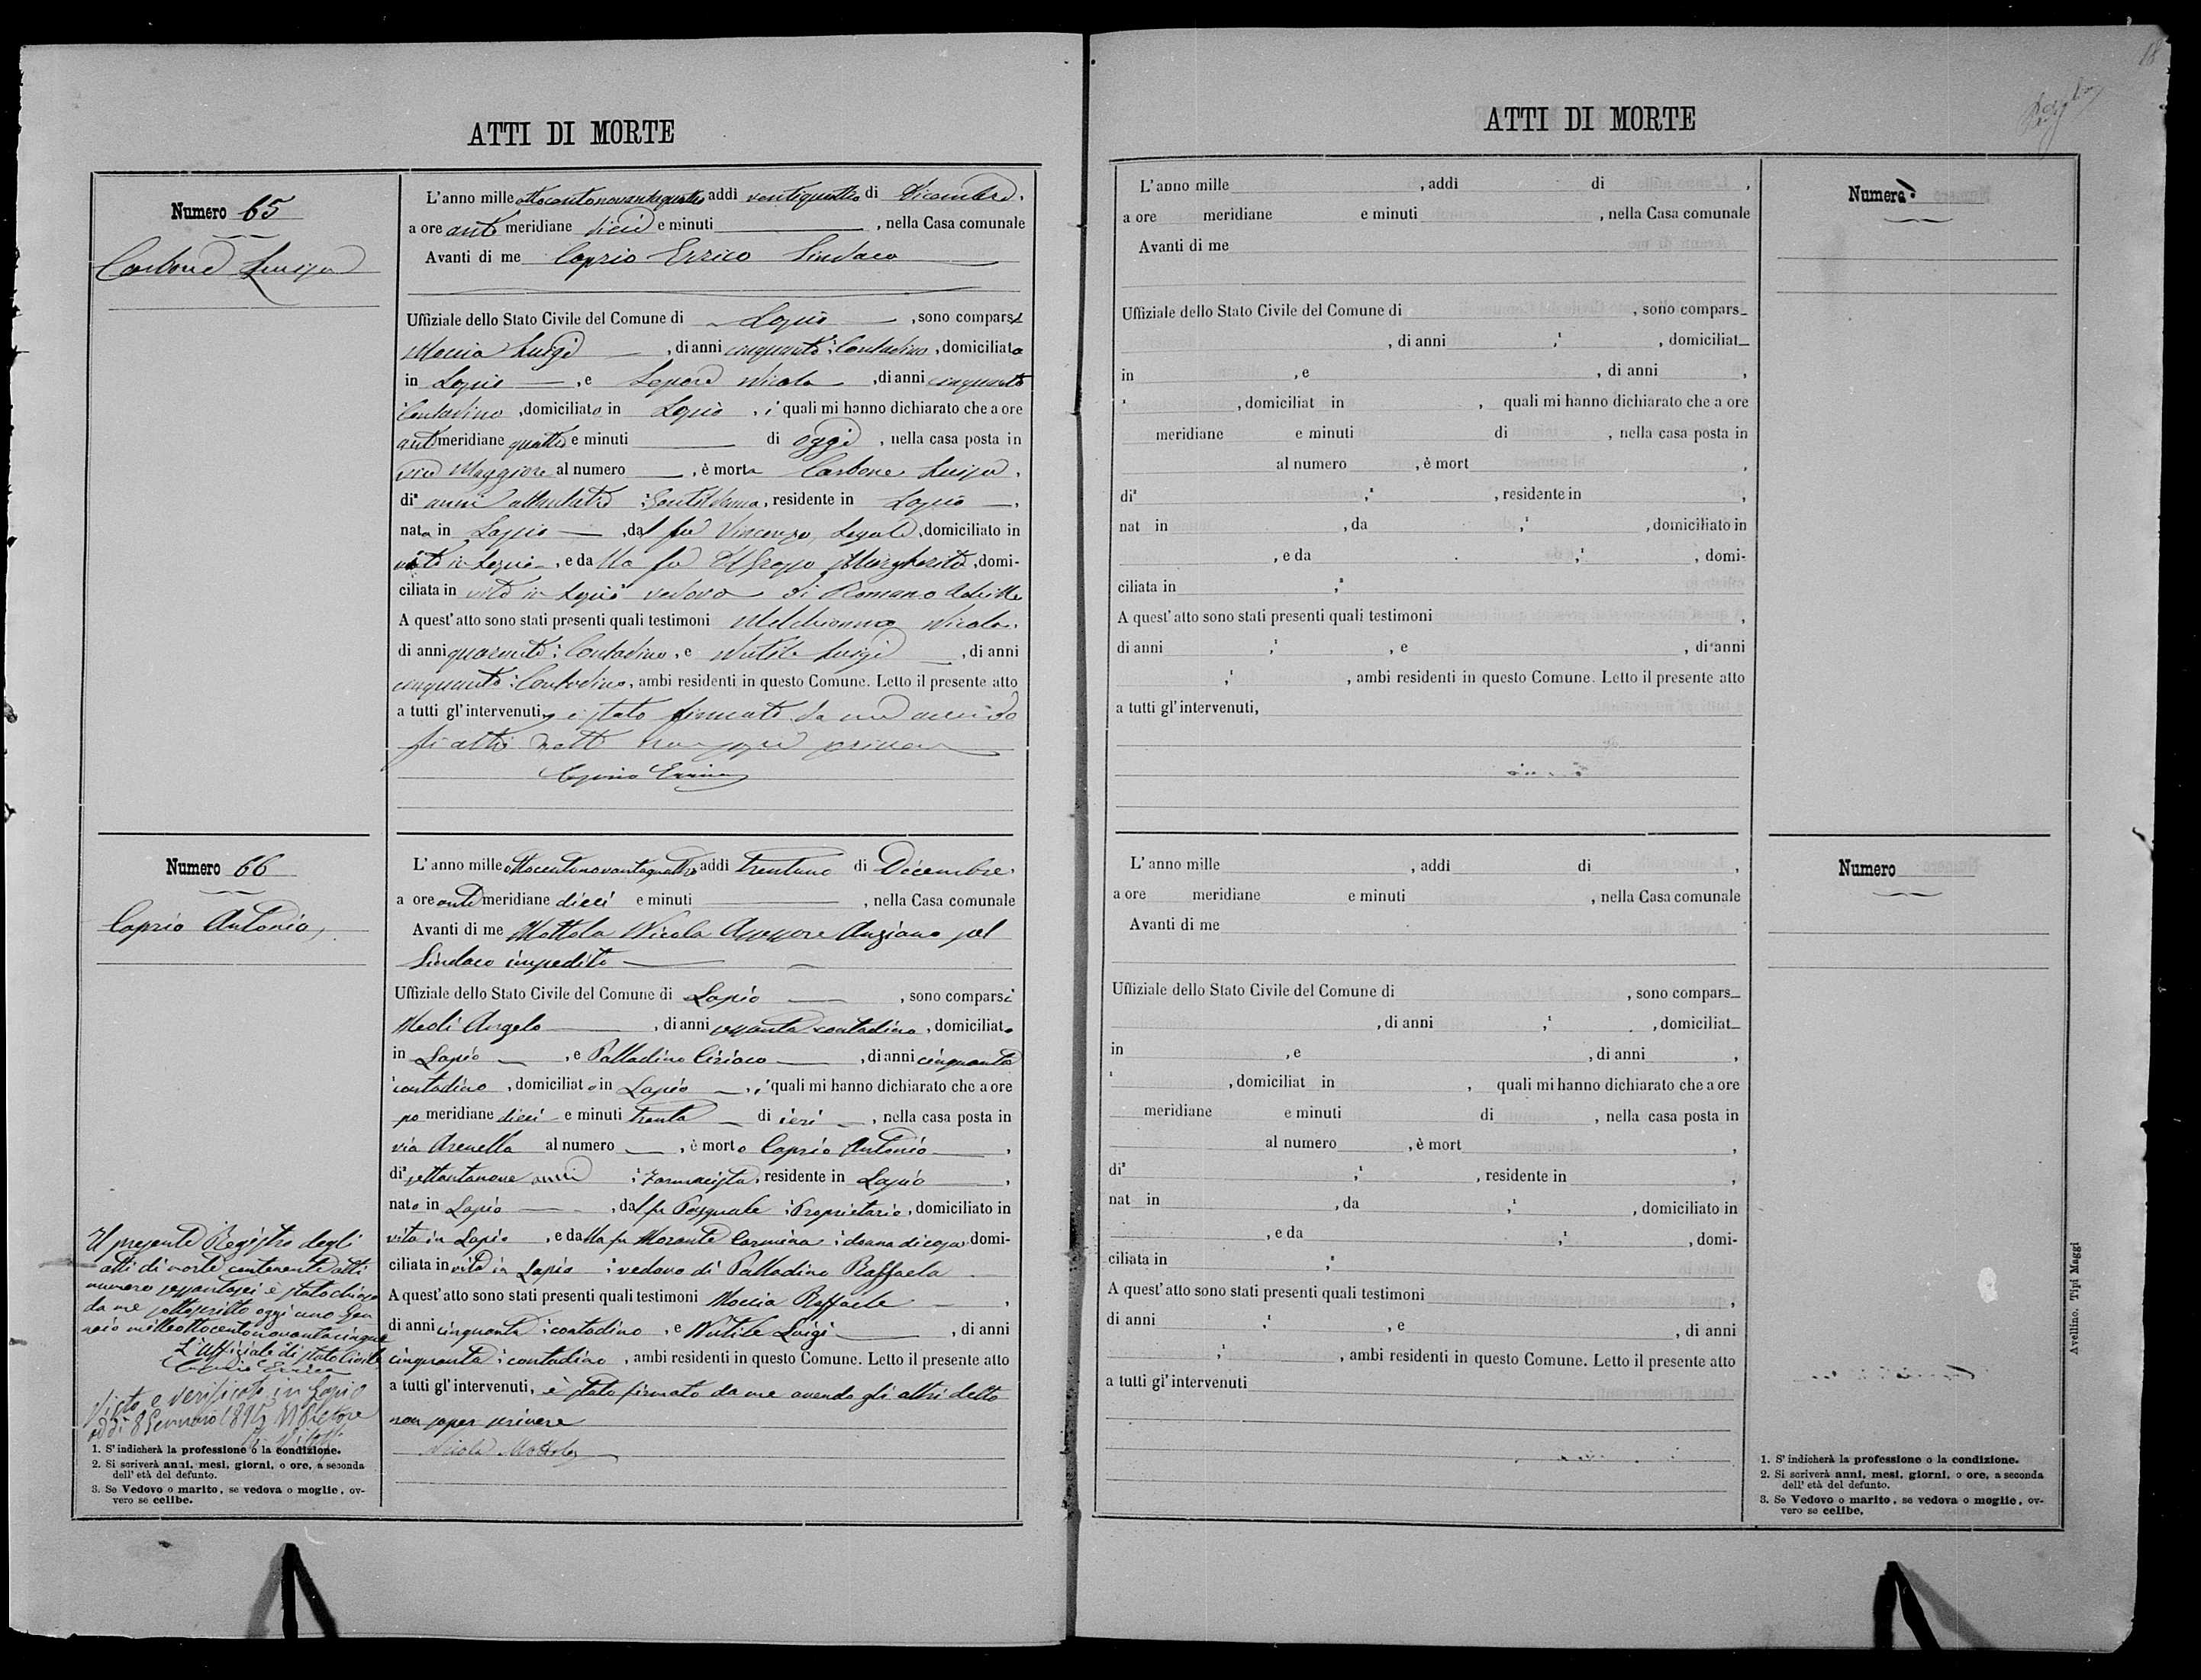 ATTI DI MORTE
Numero 65
Carbone Luisa
L'anno mille ottocentonovantaquattro addì ventiquattro di Dicembre,
a ore anti meridiane dieci e minuti , nella Casa comunale
Avanti di me Caprio Errico Sindaco
Uffiziale dello Stato Civile del Comune di Lapio , sono comparsi
Moccia Luigi , di anni cinquanta Contadino, domiciliato
in Lapio , e Lepore Nicola , di anni cinquanta
Contadino , domiciliato in Lapio , i quali mi hanno dichiarato che a ore
anti meridiane quattro e minuti di oggi , nella casa posta in
via Maggiore al numero , è morta Carbone Luisa ,
di anni ottantatre Gentildonna, residente in Lapio ,
nata in Lapio , dal fu Vincenzo Legale, domiciliato in
vita in Lapio , e da lla fu Margherita , domi-
ciliata in vita in Lapio vedova di Romano Achille
A quest'atto sono stati presenti quali testimoni Melchionna Nicola,
di anni quaranta Contadino, e Nutile Luigi , di anni
cinquanta Contadino, ambi residenti in questo Comune. Letto il presente atto
a tutti gl'intervenuti, è stato firmato da me avendo
gli altri detto non saper scrivere
Caprio Errico
Numero 66
Caprio Antonio
L'anno mille ottocentonovantaquattro addì trentuno di Decembre,
a ore anti meridiane dieci e minuti , nella Casa comunale
Avanti di me Mottola Nicola Assessore Anziano pel
Sindaco impedito
Uffiziale dello Stato Civile del Comune di Lapio , sono comparsi
Meoli Angelo , di anni sessanta contadino , domiciliato
in Lapio , e Palladino Ciriaco , di anni cinquanta
contadino , domiciliato in Lapio , i quali mi hanno dichiarato che a ore
po meridiane dieci e minuti trenta di ieri , nella casa posta in
via Arenella al numero , è morto Caprio Antonio ,
di settantanove anni Farmacista, residente in Lapio ,
nato in Lapio , dal fu Pasquale Proprietario, domiciliato in
vita in Lapio , e dalla fu Morante Carmina donna di casa domi-
ciliata in vita in Lapio vedovo di Palladino Raffaela
A quest'atto sono stati presenti quali testimoni Moccia Raffaele ,
di anni cinquanta contadino , e Nutile Luigi , di anni
cinquanta contadino , ambi residenti in questo Comune. Letto il presente atto
a tutti gl'intervenuti, è stato firmato da me avendo gli altri detto
non saper scrivere
Nicola Mottola
Il presente Registro degli
atti di morte contenente atti
numero sessantasei è stato chiuso
da me sottoscritto oggi uno Gen
naio milleottocentonovantacinque
L'Uffiziale di stato Civile
Caprio Errico
Visto e verificato in Lapio
addì 8 Gennaro 1895 Il Pretore
1. S'indicherà la professione o la condizione.
2. Si scriverà anni, mesi, giorni, o ore, a seconda
dell'età del defunto.
3. Se Vedovo o marito, se vedova o moglie, ov-
vero se celibe.
ATTI DI MORTE
18
Numero
L'anno mille , addì di ,
a ore meridiane e minuti , nella Casa comunale
Avanti di me
Uffiziale dello Stato Civile del Comune di , sono compars
, di anni , domiciliat
in , e , di anni ,
, domiciliat in , quali mi hanno dichiarato che a ore
meridiane e minuti di , nella casa posta in
al numero , è mort ,
di , residente in ,
nat in , da , domiciliato in
, e da , domi-
ciliata in
A quest'atto sono stati presenti quali testimoni ,
di anni , e , di anni
, ambi residenti in questo Comune. Letto il presente atto
a tutti gl'intervenuti,
Numero
L'anno mille , addì di ,
a ore meridiane e minuti , nella Casa comunale
Avanti di me
Uffiziale dello Stato Civile del Comune di , sono compars
, di anni , domiciliat
in , e , di anni ,
, domiciliat in , quali mi hanno dichiarato che a ore
meridiane e minuti di , nella casa posta in
al numero , è mort ,
di , residente in ,
nat in , da , domiciliato in
, e da , domi-
ciliata in
A quest'atto sono stati presenti quali testimoni ,
di anni , e , di anni
, ambi residenti in questo Comune. Letto il presente atto
a tutti gl'intervenuti
1. S'indicherà la professione o la condizione.
2. Si scriverà anni, mesi, giorni, o ore, a seconda
dell'età del defunto.
3. Se Vedovo o marito, se vedova o moglie, ov-
vero se celibe.
Avellino. Tipi Maggi